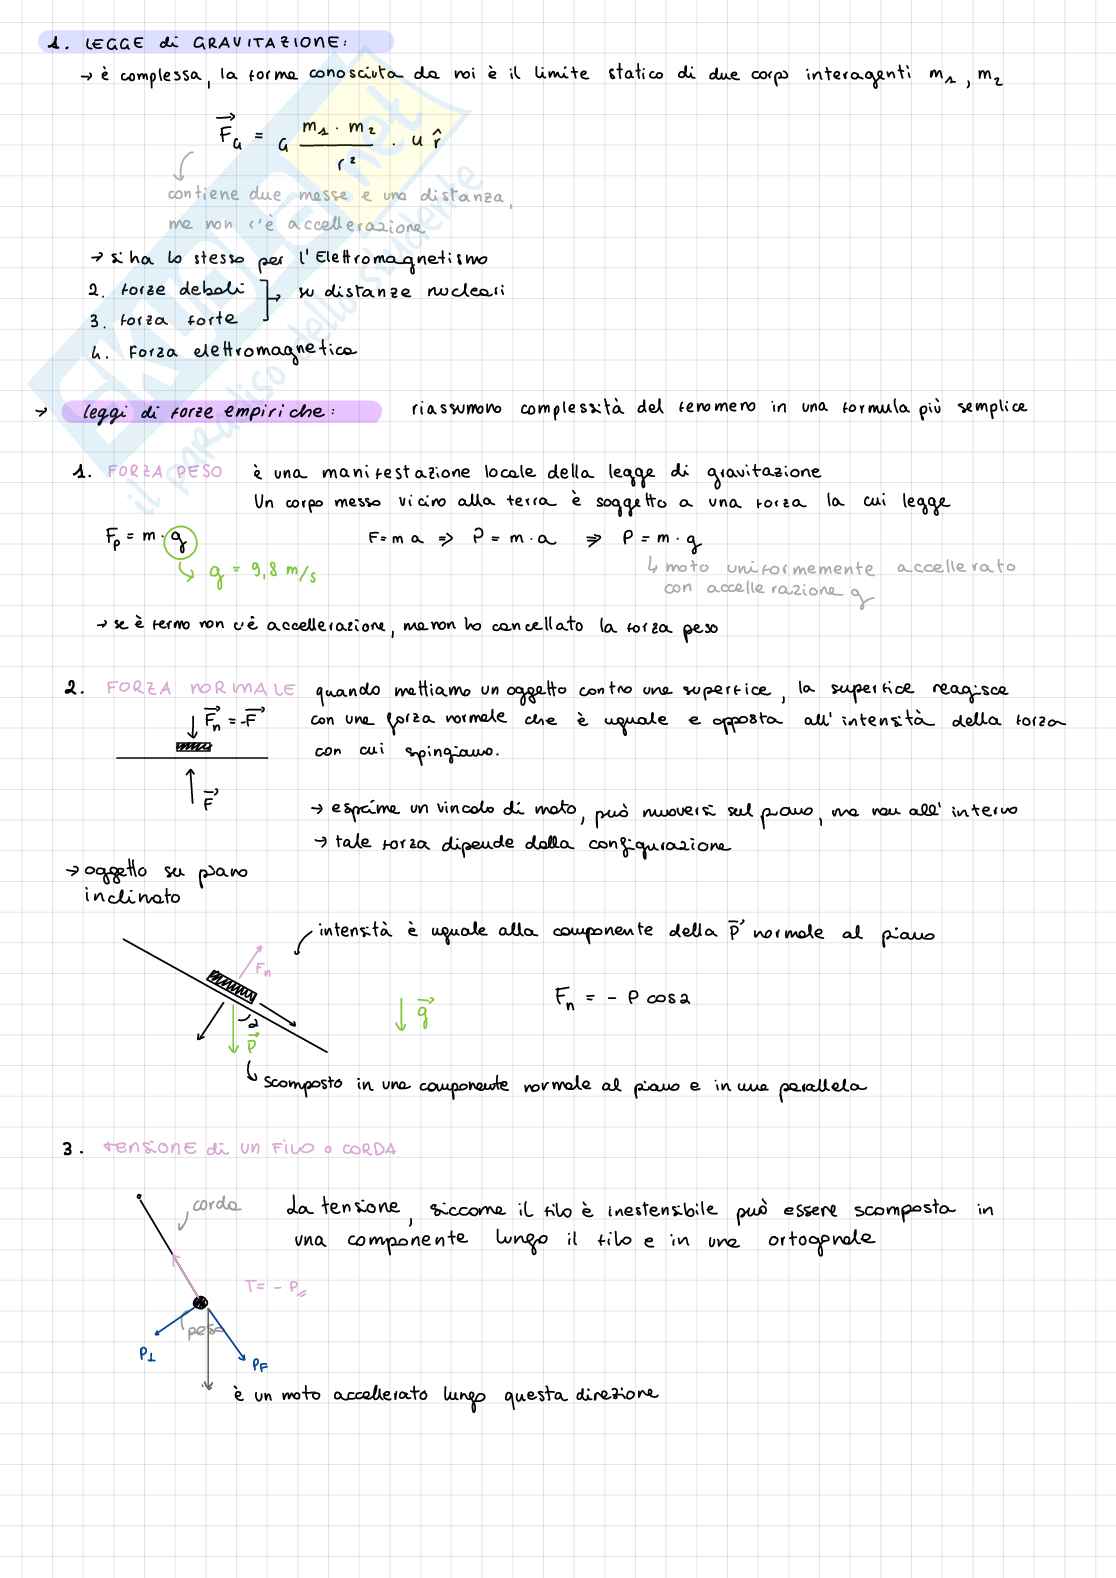 1. LEGGE di GRAVITAZIONE:
→ è complessa, la forma conosciuta da noi è il limite statico di due corpi interagenti m1, m2
F⃗G = G m1 · m2 / r² · u r̂
contiene due masse e una distanza,
ma non c'è accellerazione
→ si ha lo stesso per l'Elettromagnetismo
2. forze deboli
→ su distanze nucleari
3. forza forte
4. Forza elettromagnetica
→ leggi di forze empiriche: riassumono complessità del fenomeno in una formula più semplice
1. FORZA PESO è una manifestazione locale della legge di gravitazione
Un corpo messo vicino alla terra è soggetto a una forza la cui legge
Fp = m · g F = m a ⇒ P = m · a ⇒ P = m · g
↳ g = 9,8 m/s
↳ moto uniformemente accellerato
con accellerazione g
→ se è fermo non c'è accellerazione, ma non ho cancellato la forza peso
2. FORZA NORMALE quando mettiamo un oggetto contro una superfice, la superfice reagisce
F⃗n = -F⃗ con una forza normale che è uguale e opposta all'intensità della forza
con cui spingiamo.
F⃗
→ esprime un vincolo di moto, può muoversi sul piano, ma non all'interno
→ tale forza dipende dalla configurazione
→ oggetto su piano
inclinato
intensità è uguale alla componente della P⃗ normale al piano
Fn
g⃗
Fn = - P cos2
2
P⃗
↳ scomposto in una componente normale al piano e in una parallela
3. TENSIONE di UN FILO o CORDA
corda
La tensione, siccome il filo è inestensibile può essere scomposta in
una componente lungo il filo e in una ortogonale
T = - P//
peso
P⊥
PF
è un moto accellerato lungo questa direzione
SKUOLA.net
il paradiso dello studente